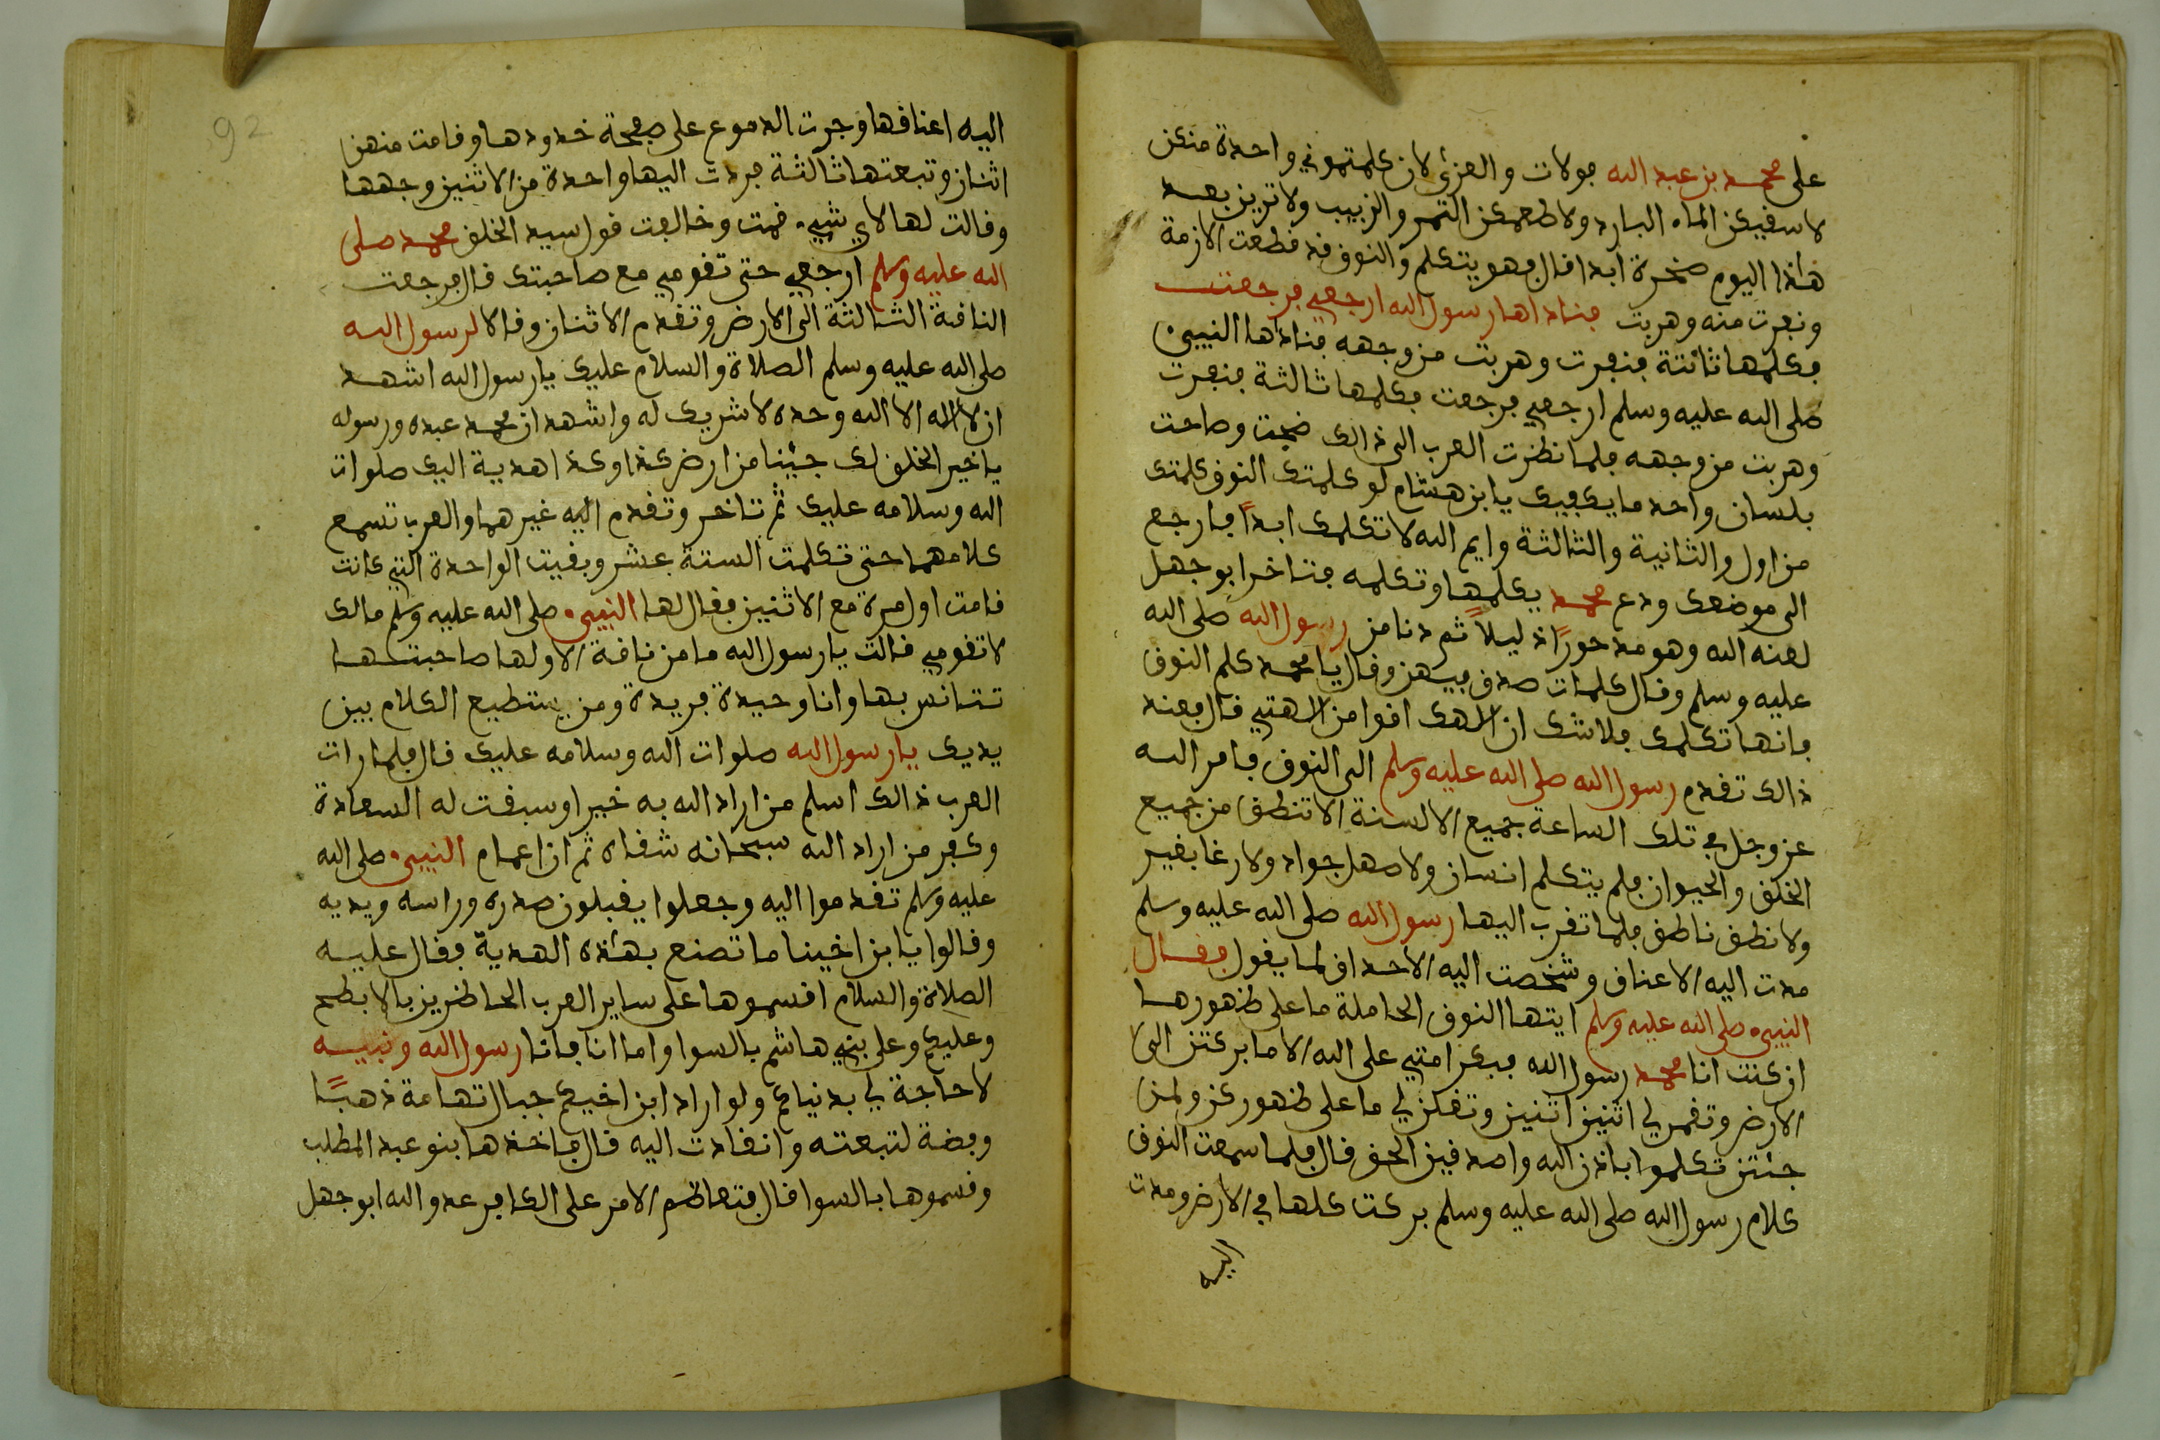 على محمد بن عبد الله فولات والعزى لان كلمتموني واحدة منكن
لاسفيكن الماء البارد ولاطعمكن التمر والزبيب ولا ترين بعد
هاذا اليوم ضخرة ابدا قال فهو يتكلم والنوق قد قطعت الازمة
ونفرت منه وهربت فناداها رسول الله ارجعي فرجعت
فكلمها ثانتة فنفرت وهربت من وجهه فناداها النبيء
صلى الله عليه وسلم ارجعي فرجعت فكلمها ثالثة فنفرت
وهربت من وجهه فلما نظرت العرب الى ذالك ضجت وصاحت
بلسان واحد ما يكفيك يا بن هشام لو كلمتك النوق كلمتك
من اول والثانية والثالثة وايم الله لا تكلمك ابداً فارجع
الى موضعك ودع محمد يكلمها وتكلمه فتاخر ابو جهل
لعنه الله وهو مدحوراً ذليلاً ثم دنا من رسول الله صلى الله
عليه وسلم وقال كلمات صدق فيهن وقال يا محمد كلم النوق
فانها تكلمك فلاشك ان الهك اقوا من الهتي قال فعند
ذالك تقدم رسول الله صلى الله عليه وسلم الى النوق فامر الله
عز وجل في تلك الساعة جميع الالسنة الا تنطق من جميع
الخلق والحيوان فلم يتكلم انسان ولا صهل جواد ولا رغا بعير
ولا نطق ناطق فلما تقرب اليها رسول الله صلى الله عليه وسلم
مدت اليه الاعناق وشخصت اليه الاحداق لما يقول فقال
النبيء صلى الله عليه وسلم ايتها النوق الحاملة ما على ظهورها
ان كنت انا محمد رسول الله فبكرامتي على الله الا ما بركتن الى
الارض وتقمر لي اثنين اثنين وتفكن لي ما على ظهوركن ولمن
جئتن تكلموا باذن الله واصدقين الحق قال فلما سمعت النوق
كلام رسول الله صلى الله عليه وسلم بركت كلها في الارض ومدت
اليه
92
اليه اعناقها وجرت الدموع على صفحة خدودها وقامت منهن
اثنان وتبعتها ثالثة فردت اليها واحدة من الاثنين وجهها
وقالت لها لاي شيء قمت وخالفت قول سيد الخلق محمد صلى
الله عليه وسلم ارجعي حتى تقومي مع صاحبتك قال فرجعت
الناقة الثالثة الى الارض وتقدم الاثنان وقالا لرسول الله
صلى الله عليه وسلم الصلاة والسلام عليك يا رسول الله اشهد
ان لا اله الا الله وحده لا شريك له واشهد ان محمد عبده ورسوله
يا خير الخلق لك جيئنا من ارض كذا وكذا هدية اليك صلوات
الله وسلامه عليك ثم تاخر وتقدم اليه غيرهما والعرب تسمع
كلامهما حتى تكلمت الستة عشر وبقيت الواحدة التي كانت
قامت اول مرة مع الاثنين فقال لها النبيء صلى الله عليه وسلم مالك
لا تقومي قالت يا رسول الله ما من ناقة الا ولها صاحبتها
تتانس بها وانا وحيدة فريدة ومن يستطيع الكلام بين
يديك يا رسول الله صلوات الله وسلامه عليك قال فلما رات
العرب ذالك اسلم من اراد الله به خيرا وسبقت له السعادة
وكفر من اراد الله سبحانه شقاه ثم ان اعمام النبيء صلى الله
عليه وسلم تقدموا اليه وجعلوا يقبلون صدره وراسه ويديه
وقالوا يا بن اخينا ما تصنع بهذه الهدية فقال عليه
الصلاة والسلام اقسموها على ساير العرب الحاظرين بالابطح
وعليكم وعلى بني هاشم بالسوا واما انا فانا رسول الله ونبيه
لا حاجة لي بدنياكم ولو اراد ابن اخيكم جبال تهامة ذهباً
وفضة لتبعته وانقادت اليه قال فاخذها بنو عبد المطلب
وقسموها بالسوا قال فتعاظم الامر على الكافر عدو الله ابو جهل